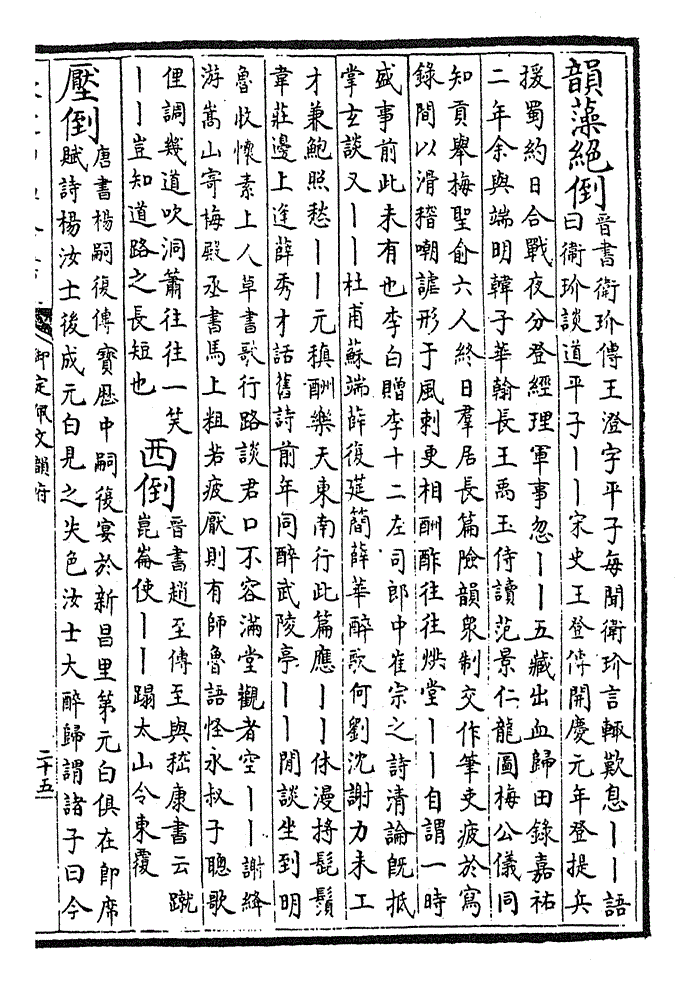 韻藻絕倒
晉書衛玠傳王澄字平子每聞衛玠言輒歎息丨丨語
曰衛玠談道平子丨丨宋史王登傳開慶元年登提兵
援蜀約日合戰夜分登經理軍事忽丨丨五藏出血歸田錄嘉祐
二年余與端明韓子華翰長王禹玉侍讀范景仁龍圖梅公儀同
知貢舉梅聖俞六人終日羣居長篇險韻衆制交作筆吏疲於寫
錄間以滑稽嘲謔形于風刺更相酬酢往往烘堂丨丨自謂一時
盛事前此未有也李白贈李十二左司郎中崔宗之詩清論既抵
掌玄談又丨丨杜甫蘇端薛復筵簡薛華醉歌何劉沈謝力未工
才兼鮑照愁丨丨元稹酬樂天東南行此篇應丨丨休漫捋髭鬚
韋莊邊上逢薛秀才話舊詩前年同醉武陵亭丨丨閒談坐到明
魯收懷素上人草書歌行路談君口不容滿堂觀者空丨丨謝絳
游嵩山寄梅殿丞書馬上粗若疲厭則有師魯語怪永叔子聰歌
俚調幾道吹洞簫往往一笑
丨丨豈知道路之長短也
西倒
晉書趙至傳至與嵇康書云蹴
崑崙使丨丨蹋太山令東覆
壓倒
唐書楊嗣復傳寶厯中嗣復宴於新昌里第元白俱在卽席
賦詩楊汝士後成元白見之失色汝士大醉歸謂諸子曰今
御定佩文韻府
二十五